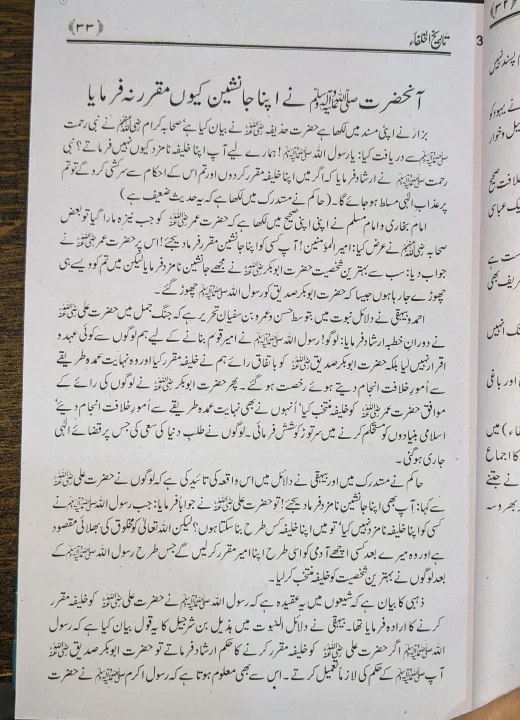 تاریخ الخلفاء
﴿۳۳﴾
آنحضرت ﷺ نے اپنا جانشین کیوں مقرر نہ فرمایا
بزار نے اپنی مسند میں لکھا ہے حضرت حذیفہ رضی اللہ عنہ نے بیان کیا ہے‘ صحابہ کرام رضی اللہ عنہم نے نبی رحمت
ﷺ سے دریافت کیا: یا رسول اللہ ﷺ! ہمارے لیے آپ اپنا خلیفہ نامزد کیوں نہیں فرماتے؟ نبی
رحمت ﷺ نے ارشاد فرمایا کہ اگر میں اپنا خلیفہ مقرر کر دوں اور تم اس کے احکام سے سرکشی کرو گے تو تم
پر عذاب الٰہی مسلط ہو جائے گا۔ (حاکم نے متدرک میں لکھا ہے کہ یہ حدیث ضعیف ہے)
امام بخاری و امام مسلم نے اپنی اپنی صحیح میں لکھا ہے کہ حضرت عمر رضی اللہ عنہ کو جب نیزہ مارا گیا تو بعض
صحابہ رضی اللہ عنہم نے عرض کیا: امیر المؤمنین! آپ کسی کو اپنا جانشین مقرر فرما دیجئے! اس پر حضرت عمر رضی اللہ عنہ نے
جواب دیا: سب سے بہترین شخصیت حضرت ابوبکر رضی اللہ عنہ نے مجھے جانشین نامزد فرمایا لیکن میں تم کو ویسے ہی
چھوڑے جا رہا ہوں جیسا کہ حضرت ابوبکر صدیق کو رسول اللہ ﷺ چھوڑے گئے۔
احمد و بیہقی نے دلائل نبوت میں بتوسط حسن و عمرو بن سفیان تحریر ہے کہ جنگ جمل میں حضرت علی رضی اللہ عنہ
نے دوران خطبہ ارشاد فرمایا: لوگو! رسول اللہ ﷺ نے امیر قوم بنانے کے لیے ہم لوگوں سے کوئی عہد و
اقرار نہیں لیا بلکہ حضرت ابوبکر صدیق رضی اللہ عنہ کو باتفاق رائے ہم نے خلیفہ مقرر کیا اور وہ نہایت عمدہ طریقے
سے اُمور خلافت انجام دیتے ہوئے رخصت ہو گئے۔ پھر حضرت ابوبکر رضی اللہ عنہ نے لوگوں کی رائے کے
موافق حضرت عمر رضی اللہ عنہ کو خلیفہ منتخب کیا‘ اُنہوں نے بھی نہایت عمدہ طریقے سے اُمور خلافت انجام دیئے‘
اسلامی بنیادوں کو مستحکم کرنے میں سر توڑ کوشش فرمائی۔ لوگوں نے طلب دنیا کی سعی کی جس پر قضائے الٰہی
جاری ہوگئی۔
حاکم نے متدرک میں اور بیہقی نے دلائل میں اس واقعہ کی تائید کی ہے کہ لوگوں نے حضرت علی رضی اللہ عنہ
سے کہا: آپ بھی اپنا جانشین نامزد فرما دیجئے! تو حضرت علی رضی اللہ عنہ نے جواباً فرمایا: جب رسول اللہ ﷺ نے
کسی کو اپنا خلیفہ نامزد نہیں کیا‘ تو میں اپنا خلیفہ کس طرح بنا سکتا ہوں؟ لیکن اللہ تعالیٰ کو مخلوق کی بھلائی مقصود
ہے اور وہ میرے بعد کسی اچھے آدمی کو اسی طرح اپنا امیر مقرر کر لیں گے جس طرح رسول اللہ ﷺ کے
بعد لوگوں نے بہترین شخصیت کو خلیفہ منتخب کر لیا۔
ذہبی کا بیان ہے کہ شیعوں میں یہ عقیدہ ہے کہ رسول اللہ ﷺ نے حضرت علی رضی اللہ عنہ کو خلیفہ مقرر
کرنے کا ارادہ فرمایا تھا۔ بیہقی نے دلائل النبوت میں ہذیل بن شرجیل کا یہ قول بیان کیا ہے کہ رسول
اللہ ﷺ اگر حضرت علی رضی اللہ عنہ کو خلیفہ مقرر کرنے کا حکم ارشاد فرماتے تو حضرت ابوبکر صدیق رضی اللہ عنہ
آپ ﷺ کے حکم کی لازماً تعمیل کرتے۔ اس سے بھی معلوم ہوتا ہے کہ رسول اکرم ﷺ نے حضرت